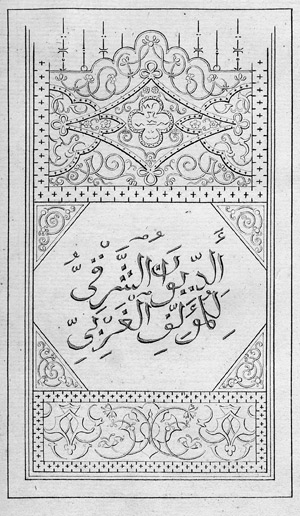 الدِّيوَانُ الشَّرْقِيُّ
لِلْمُؤَلِّفِ الْغَرْبِيِّ